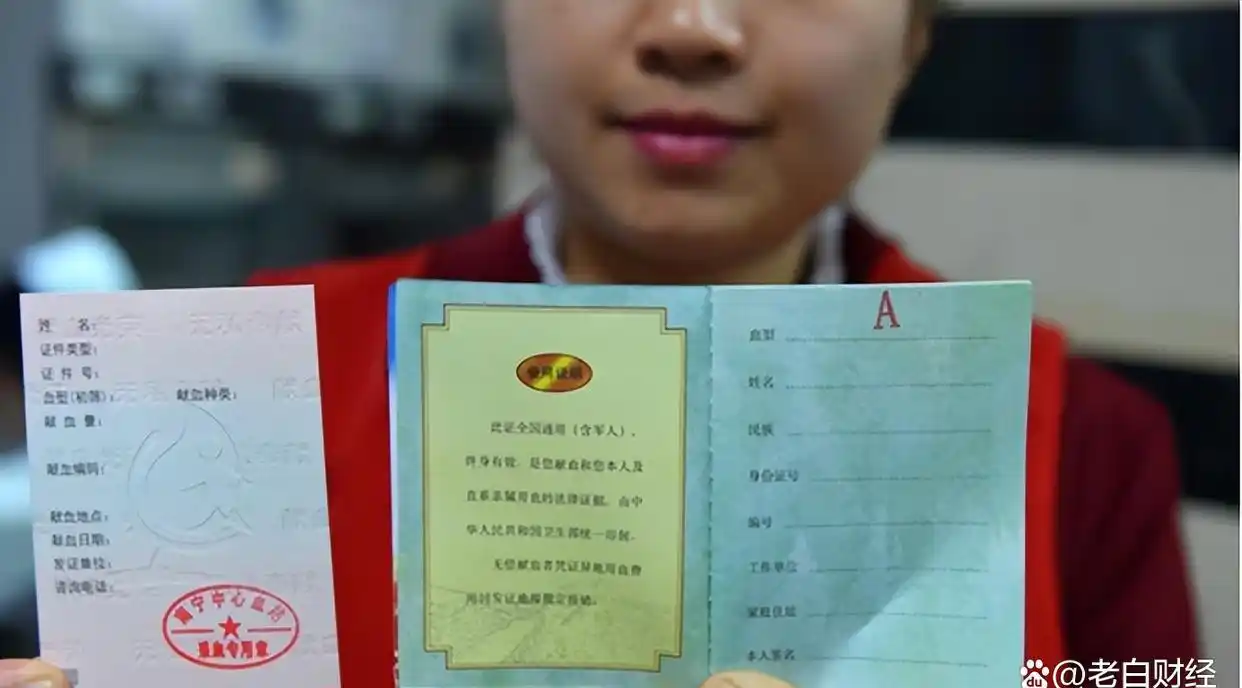 姓 名：
证件类型：
证 件 号：
血型(初筛)： 献血种类：
献 血 量：
献血编码：
献血地点：
献血日期：
发证单位：
咨询电话：
中心血站
采血专用章
此证全国通用（含军人），
终身有效，是您献血和您本人及
直系亲属用血的法律证据。由中
华人民共和国卫生部统一印制。
无偿献血者凭证异地用血费
用回发证地按规定报销。
A
血型
姓名
民族
身份证号
编号
工作单位
家庭住址
本人签名
du @老白财经